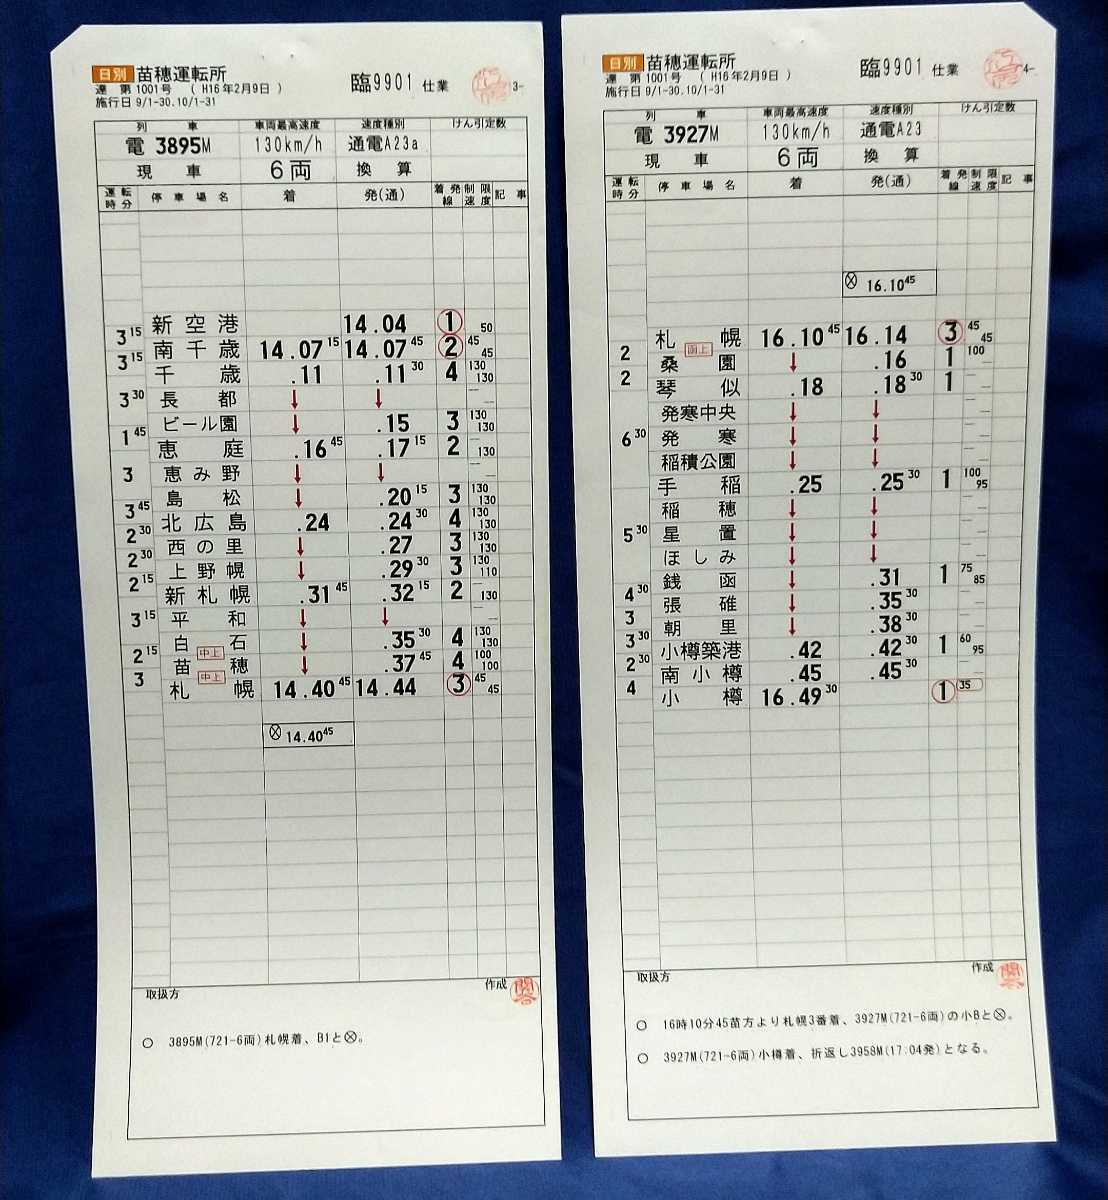 日別 苗穂運転所 臨9901 仕業
運 第1001号 ( H16年2月9日 ) 3-
施行日 9/1-30.10/1-31
列 車 車両最高速度 速度種別 けん引定数
電 3895M 130km/h 通電A23a
現 車 6両 換 算
運転時分 停車場名 着 発(通) 着発線 制限速度 記事
新空港 14.04 ① 50
3 15
南千歳 14.07 15 14.07 45 ② 45 45
3 15
千歳 .11 .11 30 4 130 130
長都 ↓ ↓ — —
3 30
ビール園 ↓ .15 3 130 130
1 45
恵庭 .16 45 .17 15 2 — 130
恵み野 ↓ ↓ — —
3
島松 ↓ .20 15 3 130 130
3 45
北広島 .24 .24 30 4 130 130
2 30
西の里 ↓ .27 3 130 130
2 30
上野幌 ↓ .29 30 3 130 110
2 15
新札幌 .31 45 .32 15 2 — 130
平和 ↓ ↓ — —
3 15
白石 ↓ .35 30 4 130 130
2 15 中上
苗穂 ↓ .37 45 4 100 100
3 中上
札幌 14.40 45 14.44 ③ 45 45
⊗ 14.40 45
取扱方 作成 関谷
○ 3895M(721-6両)札幌着、B1と⊗。
日別 苗穂運転所 臨9901 仕業
運 第1001号 ( H16年2月9日 ) 4-
施行日 9/1-30.10/1-31
列 車 車両最高速度 速度種別 けん引定数
電 3927M 130km/h 通電A23
現 車 6両 換 算
運転時分 停車場名 着 発(通) 着発線 制限速度 記事
⊗ 16.10 45
札幌 16.10 45 16.14 ③ 45 45
2 函上
桑園 ↓ .16 1 100 —
2
琴似 .18 .18 30 1 — —
発寒中央 ↓ ↓ — —
6 30
発寒 ↓ ↓ — —
稲積公園 ↓ ↓ — —
手稲 .25 .25 30 1 100 95
稲穂 ↓ ↓ — —
5 30
星置 ↓ ↓ — —
ほしみ ↓ ↓ — —
銭函 ↓ .31 1 75 85
4 30
張碓 ↓ .35 30 — —
3
朝里 ↓ .38 30 — —
3 30
小樽築港 .42 .42 30 1 60 95
2 30
南小樽 .45 .45 30 — —
4
小樽 16.49 30 ① 35
取扱方 作成 関谷
○ 16時10分45苗方より札幌3番着、3927M(721-6両)の小Bと⊗。
○ 3927M(721-6両)小樽着、折返し3958M(17:04発)となる。